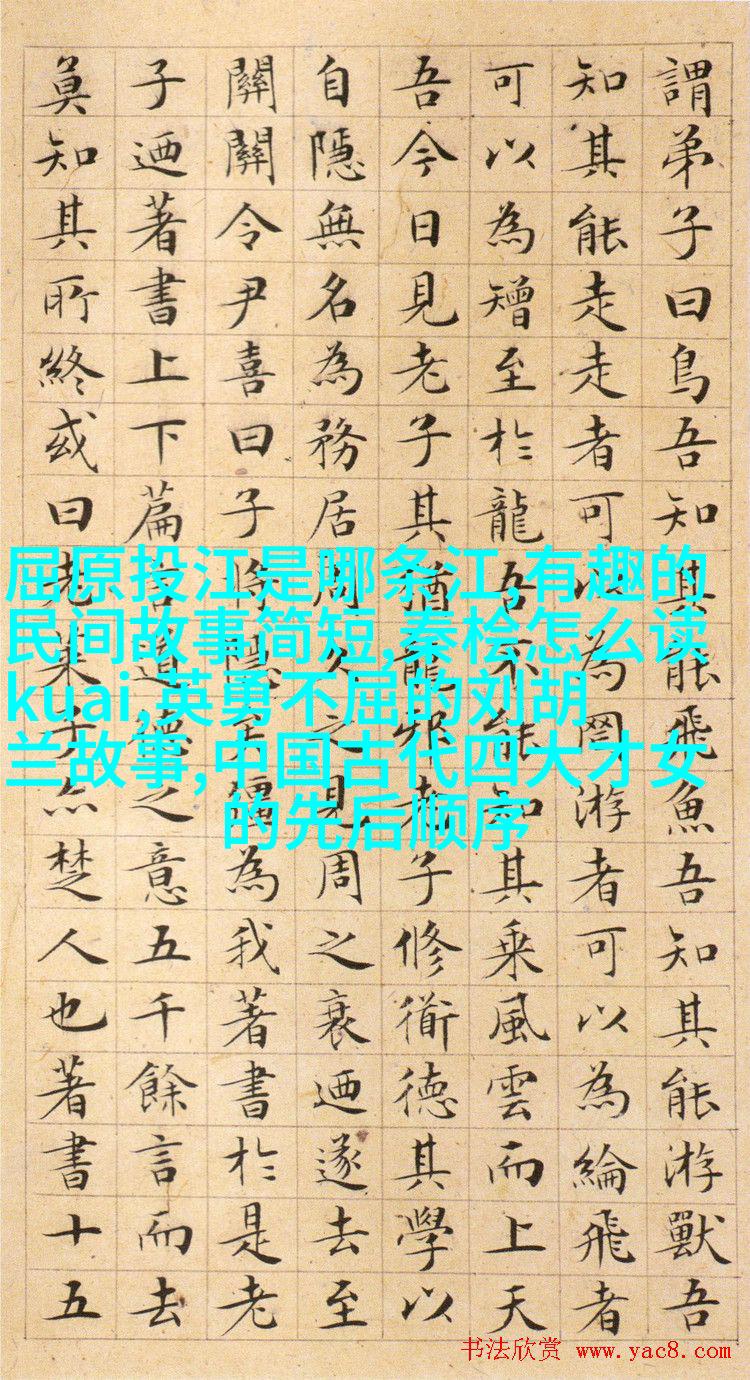 謂弟子曰鳥吾知其能飛魚吾知其能游獸吾
知其能走走者可以為罔游者可以為綸飛者
可以為矰至於龍吾不能知其乘風雲而上天
吾今日見老子其猶龍邪老子修衜德其學以
自隱無名為務居周久之見周之衰迺遂去至
關關令尹喜曰子將隱矣彊為我著書於是老
子迺著書上下篇言道德之意五千餘言而去
莫知其所終或曰老萊子亦楚人也著書十五
屈原投江是哪条江,有趣的
民间故事简短,秦桧怎么读
kuai,英勇不屈的刘胡
兰故事,中国古代四大才女
的先后顺序
书法欣赏 www.yac8.com